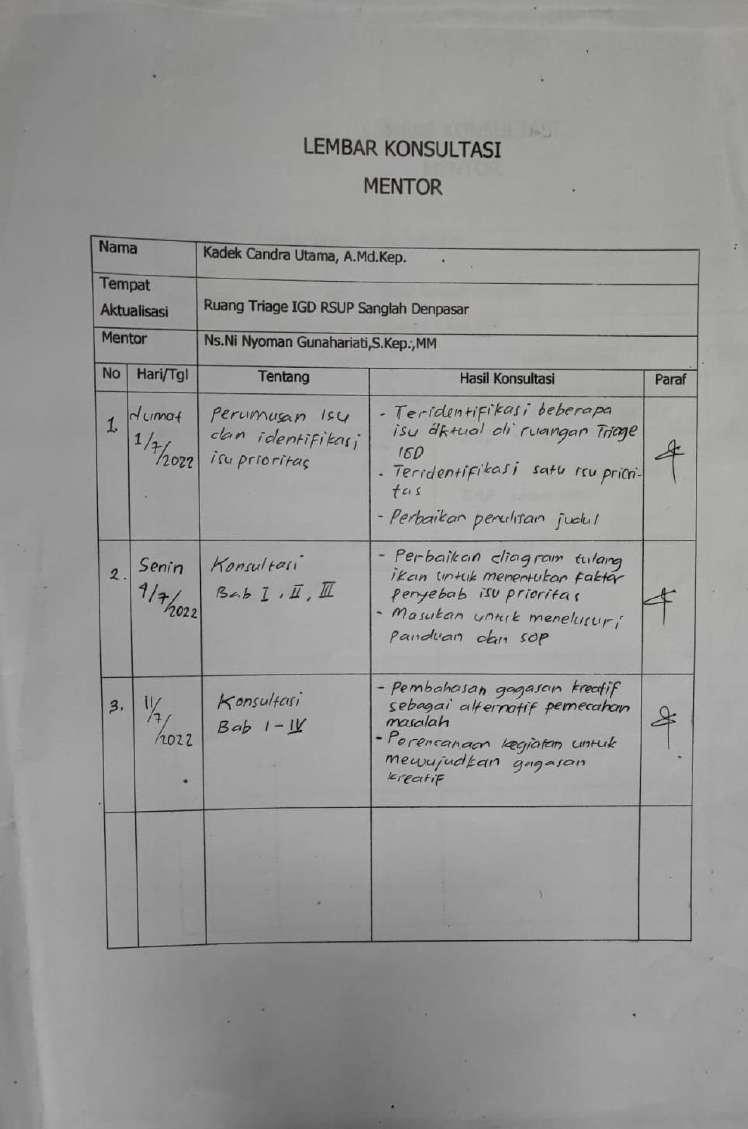 LEMBAR KONSULTASI
MENTOR
Nama
Kadek Candra Utama, A.Md.Kep.
Tempat
Aktualisasi
Ruang Triage IGD RSUP Sanglah Denpasar
Mentor
Ns.Ni Nyoman Gunahariati,S.Kep.,MM
No Hari/Tgl Tentang Hasil Konsultasi Paraf
1.
Jumat
1/7/2022
Perumusan isu
dan identifikasi
isu prioritas
- Teridentifikasi beberapa
isu aktual di ruangan Triage
IGD
- Teridentifikasi satu isu priori-
tas
- Perbaikan penulisan judul
2.
Senin
4/7/2022
Konsultasi
Bab I, II, III
- Perbaikan diagram tulang
ikan untuk menentukan faktor
penyebab isu prioritas
- Masukan untuk menelusuri
Panduan dan SOP
3.
11/7/2022
Konsultasi
Bab I - IV
- Pembahasan gagasan kreatif
sebagai alternatif pemecahan
masalah
- Perencanaan kegiatan untuk
mewujudkan gagasan
kreatif